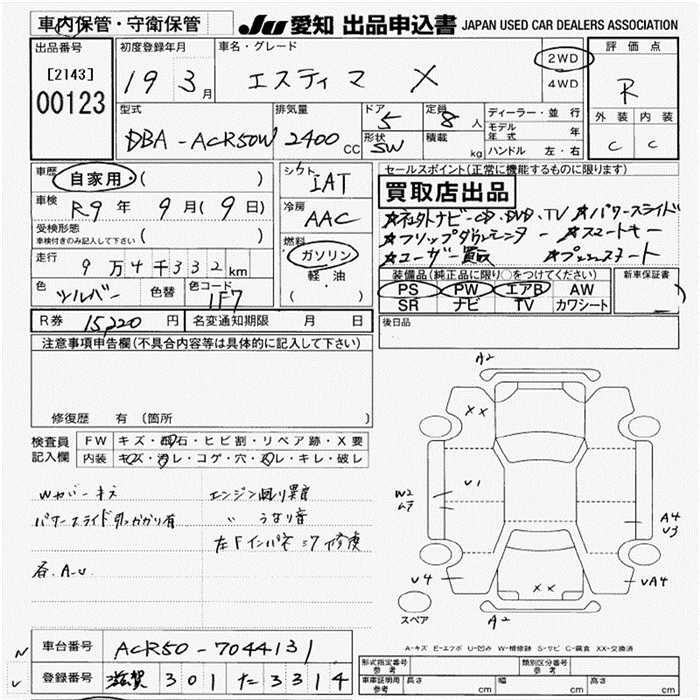 車内保管・守衛保管
JU 愛知 出品申込書 JAPAN USED CAR DEALERS ASSOCIATION
出品番号
[2143]
00123
初度登録年月
19 3月
車名・グレード
エスティマ X
2WD
4WD
評価点
R
外装 内装
C C
型式
DBA-ACR50W
排気量
2400 CC
ドア
5
形状
SW
定員
8 人
積載
kg
ディーラー・並行
モデル年式 年
ハンドル 左・右
車歴
自家用・( )
車検
R9 年 9 月 (9 日)
受検形態
車検付きのみ記入して下さい
( )
走行
9万4千332km
色
シルバー
色替
色コード
1F7
シフト
IAT
冷房
AAC
燃料
ガソリン
軽・油
( )
セールスポイント(正常に機能するものに限ります)
買取店出品
★社外ナビ・CD・DVD・TV ★パワースライド
★フリップダウンモニター ★スマートキー
★ユーザー買取 ★プッシュスタート
装備品(純正品に限り○をつけてください)
PS PW エアB AW
SR ナビ TV カワシート
新車保証書
後日品
R券 15,220 円 名変通知期限 月 日
注意事項申告欄(不具合内容等は具体的に記入して下さい)
修復歴 有 (箇所 )
検査員
記入欄
FW キズ・飛石・ヒビ割・リペア跡・X要
内装 キズ・汚レ・コゲ・穴・スレ・キレ・破レ
Wカバーキズ
パワースライド引っかかり有
各、A-U
エンジン回り異音
〃 うなり音
左Fインパネ ミワ 修復
A2
XX
U1
W2
A4
U3
U4
UA4
XX
A2
スペア
A-キズ E-エクボ U-凹み W-補修跡 S-サビ C-腐食 XX-交換済
車台番号 ACR50-7044131
登録番号 滋賀 301 た 3314
形式指定番号
参考
類別区分番号
参考
車庫証明用
参考
長さ cm 幅 cm 高さ cm